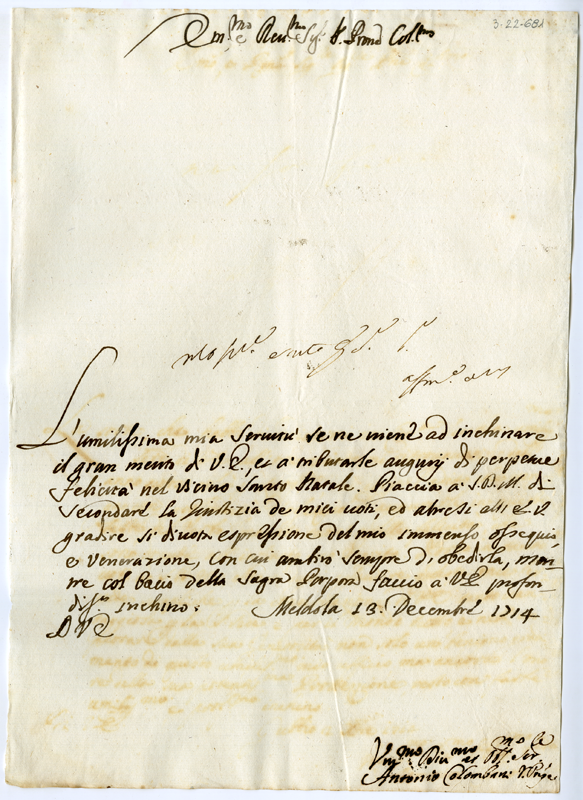 3-22-681
Em.mo e Rev.mo Sig.r P.rone Col.mo
L'umilissima mia servitù se ne viene ad inchinare
il gran merito di V.E., et à tributarle augurij di perpetue
felicità nel vicino Santo Natale. Piaccia à S.D.M. di
secondare la Giustizia de miei voti, ed altresi all' E.V.
gradire si divota espressione del mio immenso ossequio,
e venerazione, con cui ambirò sempre d'obedirla, men-
tre col bacio della Sagra Porpora faccio à V.E. profon-
diss.o inchino: Meldola 13. Decembre 1714
D V E
Um.mo Div.mo et Obb.mo Ser.re
Antonio Colombani